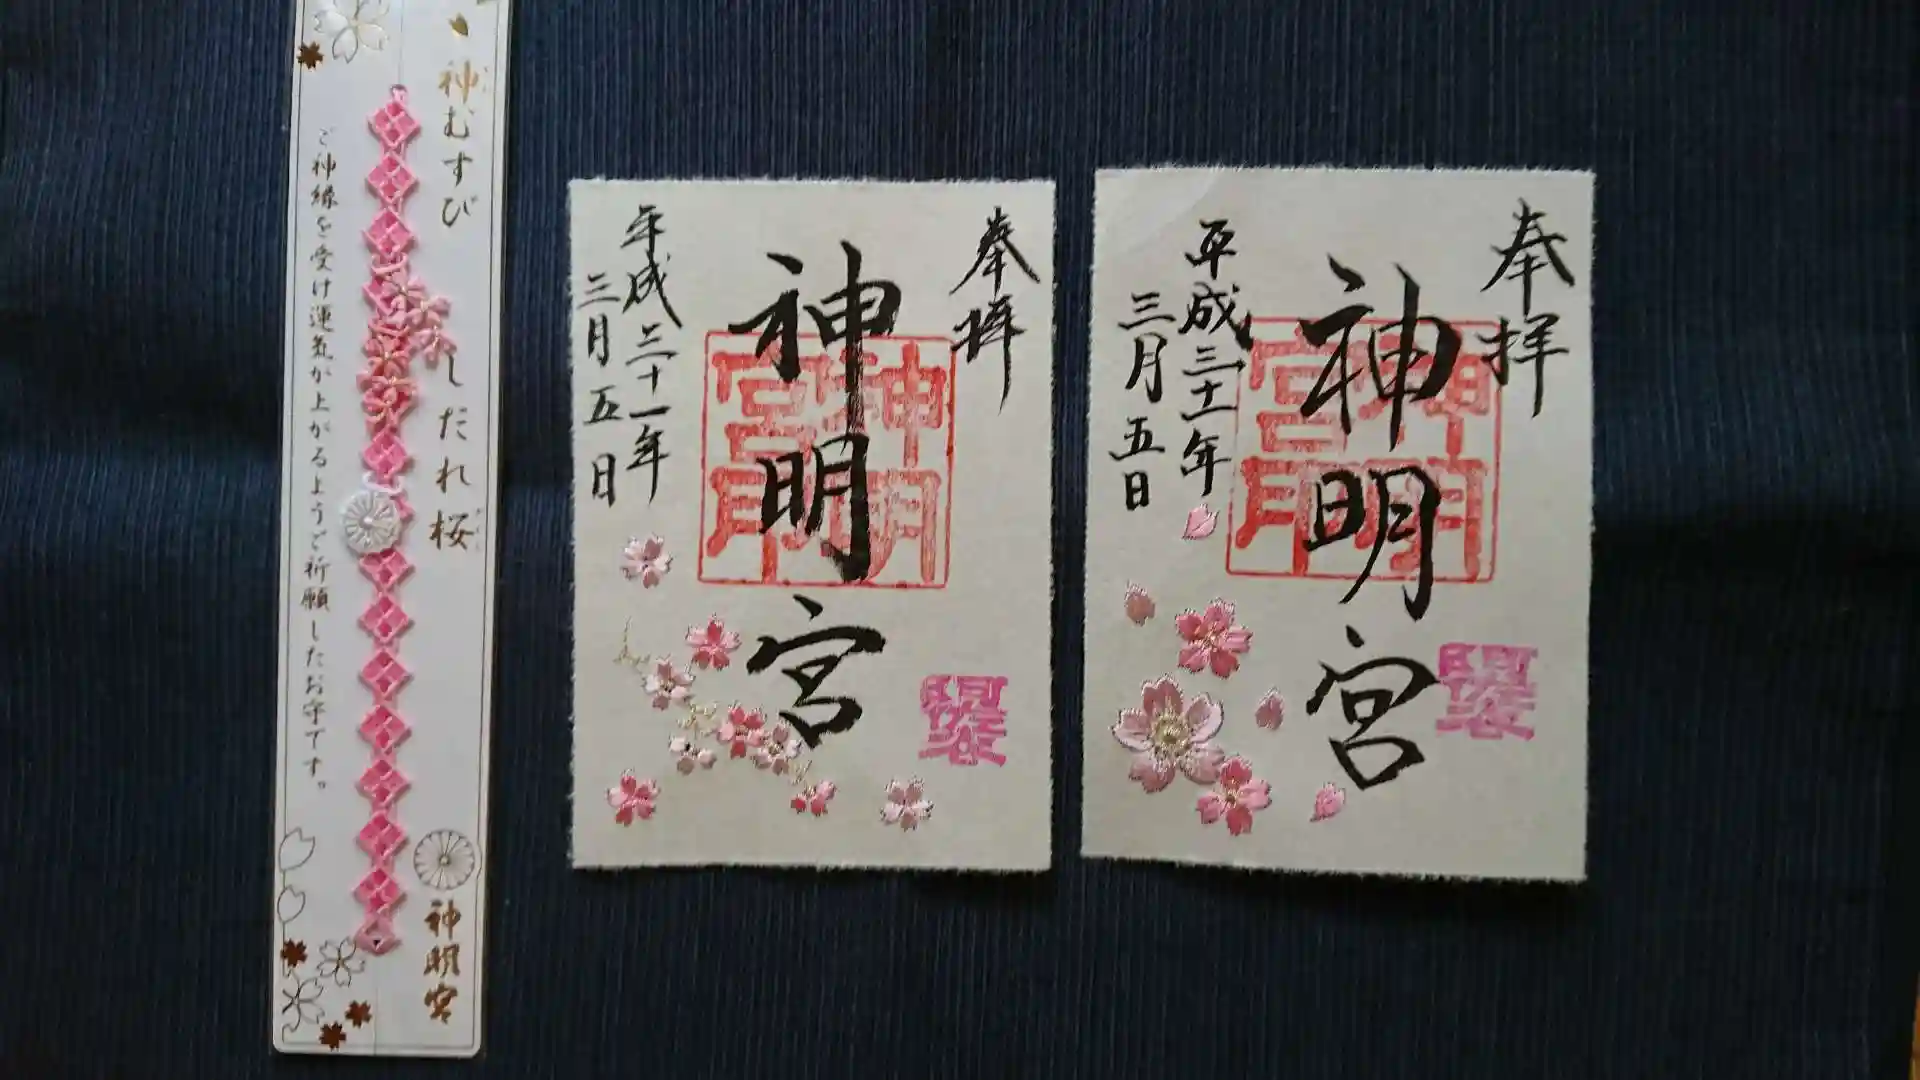 神むすび
しだれ桜
ご神縁を受け運気が上がるようご祈願したお守です。
神明宮
奉拝
神明宮
平成三十一年
三月五日
神明宮
奉拝
神明宮
平成三十一年
三月五日
神明宮